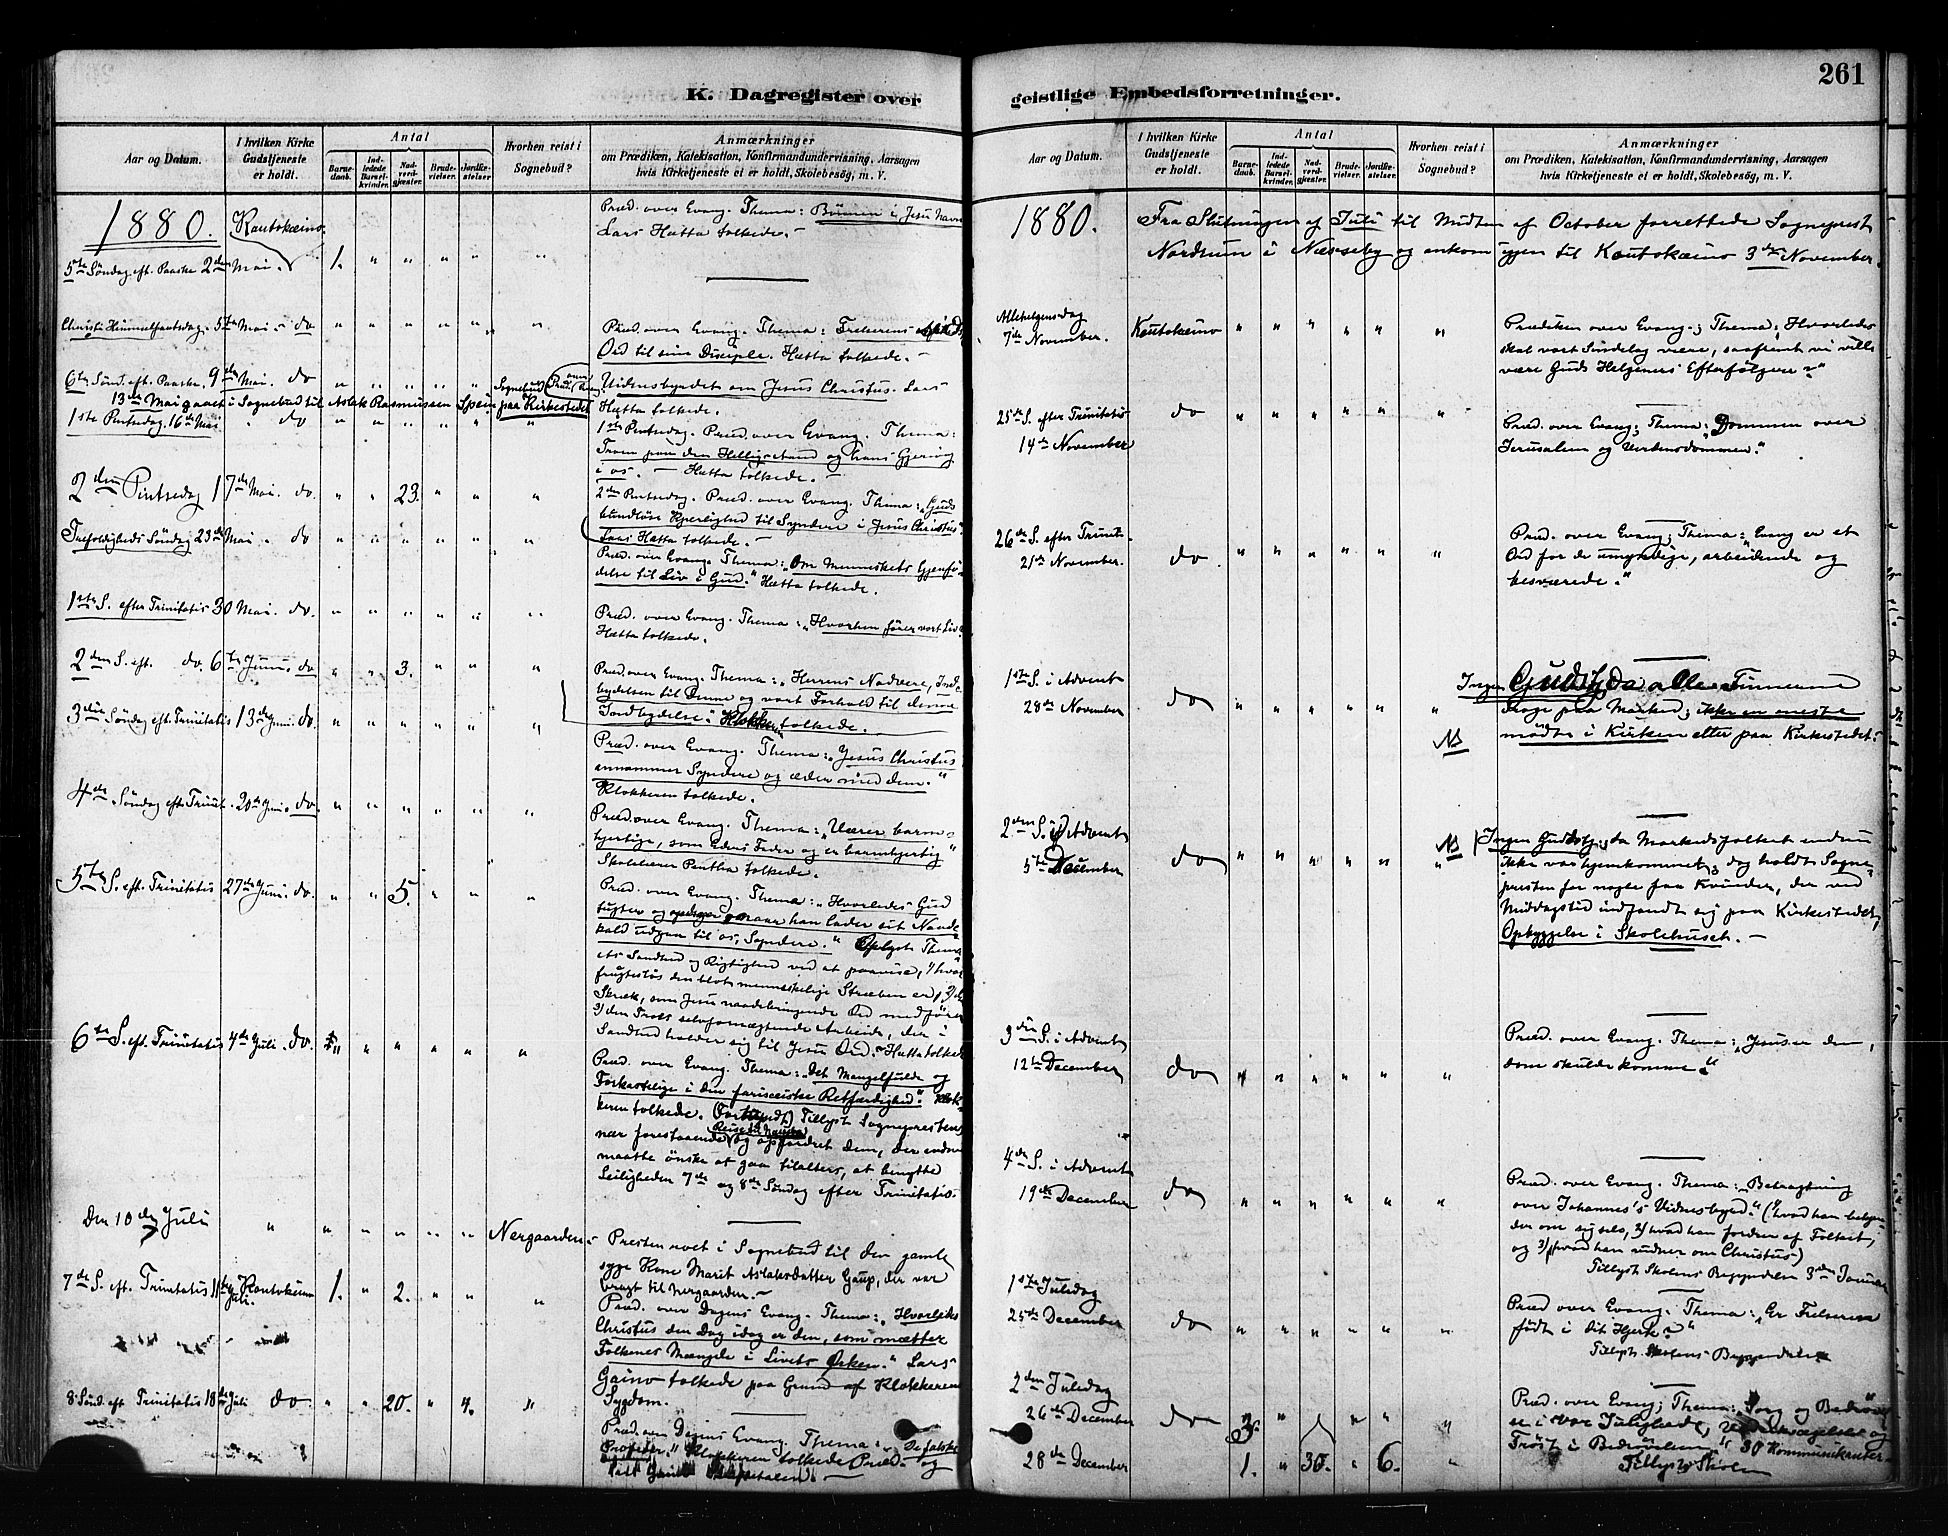 261
K. Dagregister over geistlige Embedsforretninger.
Aar og Datum.
I hvilken Kirke Gudstjeneste er holdt.
Antal
Barnedaab.
Indledede Barselkvinder.
Nadverdgjæster.
Brudevielser.
Jordfæstelser.
Hvorhen reist i Sognebud?
Anmærkninger
om Prædiken, Katekisation, Konfirmandundervisning, Aarsagen
hvis Kirketjeneste ei er holdt, Skolebesøg, m. V.
1880. Kautokeino.
Præd. over Evang. Thema: Bønnen i Jesu Navn
Lars Hætta tolkede. -
5te Søndag eft. Paaske 2den Mai. 1. " " " " "
Christi Himmelfartsdag. 5te Mai - do " " " " " "
Præd. over Evang. Thema: Frelserens Afskeds
Ord til sine Disciple. Hætta tolkede. -
6te Sønd. eft. Paaske. 9de Mai. do " " " " "
Vidnesbyrdet om Jesus Christus. Lars
13de Mai gaaet i Sognebud til Aslak Rasmussen Spein paa Kirkestedet
Hætta tolkede.
1ste Pintsedag. 16de Mai " do " " " " " "
1ste Pintsedag. Præd. over Evang. Thema:
Troen paa den Helligaand og hans Gjerning
i os. - Hætta tolkede. -
2den Pintsedag 17de Mai. do. " " 23. " " "
2den Pintsedag. Præd. over Evang. Thema: "Guds
bundløse Kjærlighed til Syndere i Jesus Christus".
Lars Hætta tolkede. -
Trefoldigheds Søndag 23de Mai. do " " " " " "
Præd. over Evang. Thema: "Om Menneskets Gjenfø-
delse til Liv i Gud." Hætta tolkede.
1ste S. efter Trinitatis 30 Mai. do. " " " " " "
Præd. over Evang. Thema: "Hvorhen fører vort Liv"
Hætta tolkede.
2den S. eft. do. 6te Juni. do " " 3. " " "
Præd. over Evang. Thema: "Herrens Nadvere, Ind-
bydelsen til Denne og vort Forhold til denne
Indbydelse". Klokkeren tolkede.
3die Søndag eft Trinitatis 13de Juni. do. " " " " " "
Præd. over Evang. Thema: "Jesus Christus
annammer Syndere og æder med dem."
Klokkeren tolkede.
4de Søndag eft Trinit. 20de Juni. do. " " " " " "
Præd over Evang. Thema: "Værer barm-
hjertige, som Eders Fader og er barmhjertig"
Skolelærer Pentha tolkede.
5te S. eft. Trinitatis 27de Juni. do. " " 5. " " "
Præd. over Evang. Thema: "Hvorledes Gud
tugter og opdrager os naar han lader sit Naade-
kald udgaa til os, Syndere." Oplyst Thema-
ets Sandhed og Rigtighed ved at paavise, 1) hvor
frugtesløs den blot menneskelige Stræben er, 2) d
Skræk, som Jesu naadebringende Ord medfører
3) den Troes selvfornægtende Arbeide, der i
Sandhed holder sig til Jesu Ord. - Hætta tolkede
6te S. eft. Trinitatis 4de Juli. do. " " " " " "
Præd. over Evang. Thema: "Det Mangelfulde og
Forkastelige i den farisæiske Retfærdighed". Klok-
keren tolkede. Tillyst Sogneprestens
nær forestaaende Reise til og opfordret Dem, der endnu
maatte ønske at gaa tilalters, at benytte
Leiligheden 7de og 8de Søndag efter Trinitatis.
Den 10de Juli " " " " " " Nergaarden. -
Presten reist i Sognebud til den gamle
syge Kone Marit Aslaksdatter Gaup, der var
bragt til Nergaarden. -
7de S. eft. Trinitatis 11te Juli. Kautokeino 1. " 2. " " "
Præd. over Dagens Evang. Thema: "Hvorledes
Christus den Dag idag er den, som mætter
Folkenes Mængde i Livets Ørken." Lars
Gaino tolkede paa Grund af Klokkerens
Sygdom.
8 Sønd. eft Trinitatis 18de Juli do. " " 20. " 4. "
Præd. over Dagens Evang. Thema: "De falske
Profeter." Klokkeren tolkede Præd. og
Aar og Datum.
I hvilken Kirke Gudstjeneste er holdt.
Antal
Barnedaab.
Indledede Barselkvinder.
Nadverdgjæster.
Brudevielser.
Jordfæstelser.
Hvorhen reist i Sognebud?
Anmærkninger
om Prædiken, Katekisation, Konfirmandundervisning, Aarsagen
hvis Kirketjeneste ei er holdt, Skolebesøg, m. V.
1880. Fra Slutningen af Juli til Midten af October forrettede Sogneprest
Nordrum i Næsseby og ankom igjen til Kautokeino 3die November.
Allehelgensdag
7de November. Kautokeino " " " " " "
Prædiken over Evang.; Thema: Hvorledes
skal vort Sindelag være, saafremt vi ville
være Guds Helgeners Efterfølgere?"
25de S. efter Trinitatis
14de November do " " " " " "
Præd. over Evang; Thema: "Dommen over
Jerusalem og Verdensdommen."
26de S. efter Trinit.
21de November. do. " " " " " "
Præd. over Evang; Thema: "Evang er et
Ord for de umyndige, arbeidende og
besværede."
1ste S. i Advent
28de November do " " " " " "
NB
Ingen Gudstj. Da alle Finnerne
droge paa Marked; ikke en eneste
mødte i Kirken eller paa Kirkestedet.
2den S. i Advent
5te December do " " " " " "
NB
Ingen Gudstj, da Markedsfolket endnu
ikke var hjemkommet, dog holdt Sogne-
presten for nogle faa Kvinder, der ved
Middagstid indfandt sig paa Kirkestedet,
Opbyggelse i Skolehuset. -
3die S. i Advent
12te December do " " " " " "
Præd. over Evang. Thema: "Jesus er den,
som skulde komme."
4de S. i Advent
19de December do " " " " " "
Præd. over Evang. Thema: "Betragtning
over Johannes's Vidnesbyrd." (1) hvad han bekjen-
der om sig selv, 2) hvad han fordrer af Folket,
og 3) hvad han vidner om Christus)
Tillyst Skolens Begyndelse 3die Januar
1ste Juledag
25de December do " " " " " "
Præd over Evang. Thema: "Er Frelseren
født i dit Hjerte?"
Tillyst Skolens Begyndelse
2den Juledag
26de December do " " " " "
Præd. over Evang; Thema: "Sorg og Bedrøvel-
se i vor Juleglæde,
Trøst i Bedrøvelsen." 30 Kommunikanter
28de December 1. " 30. " 6. "
Tillyst Skolen